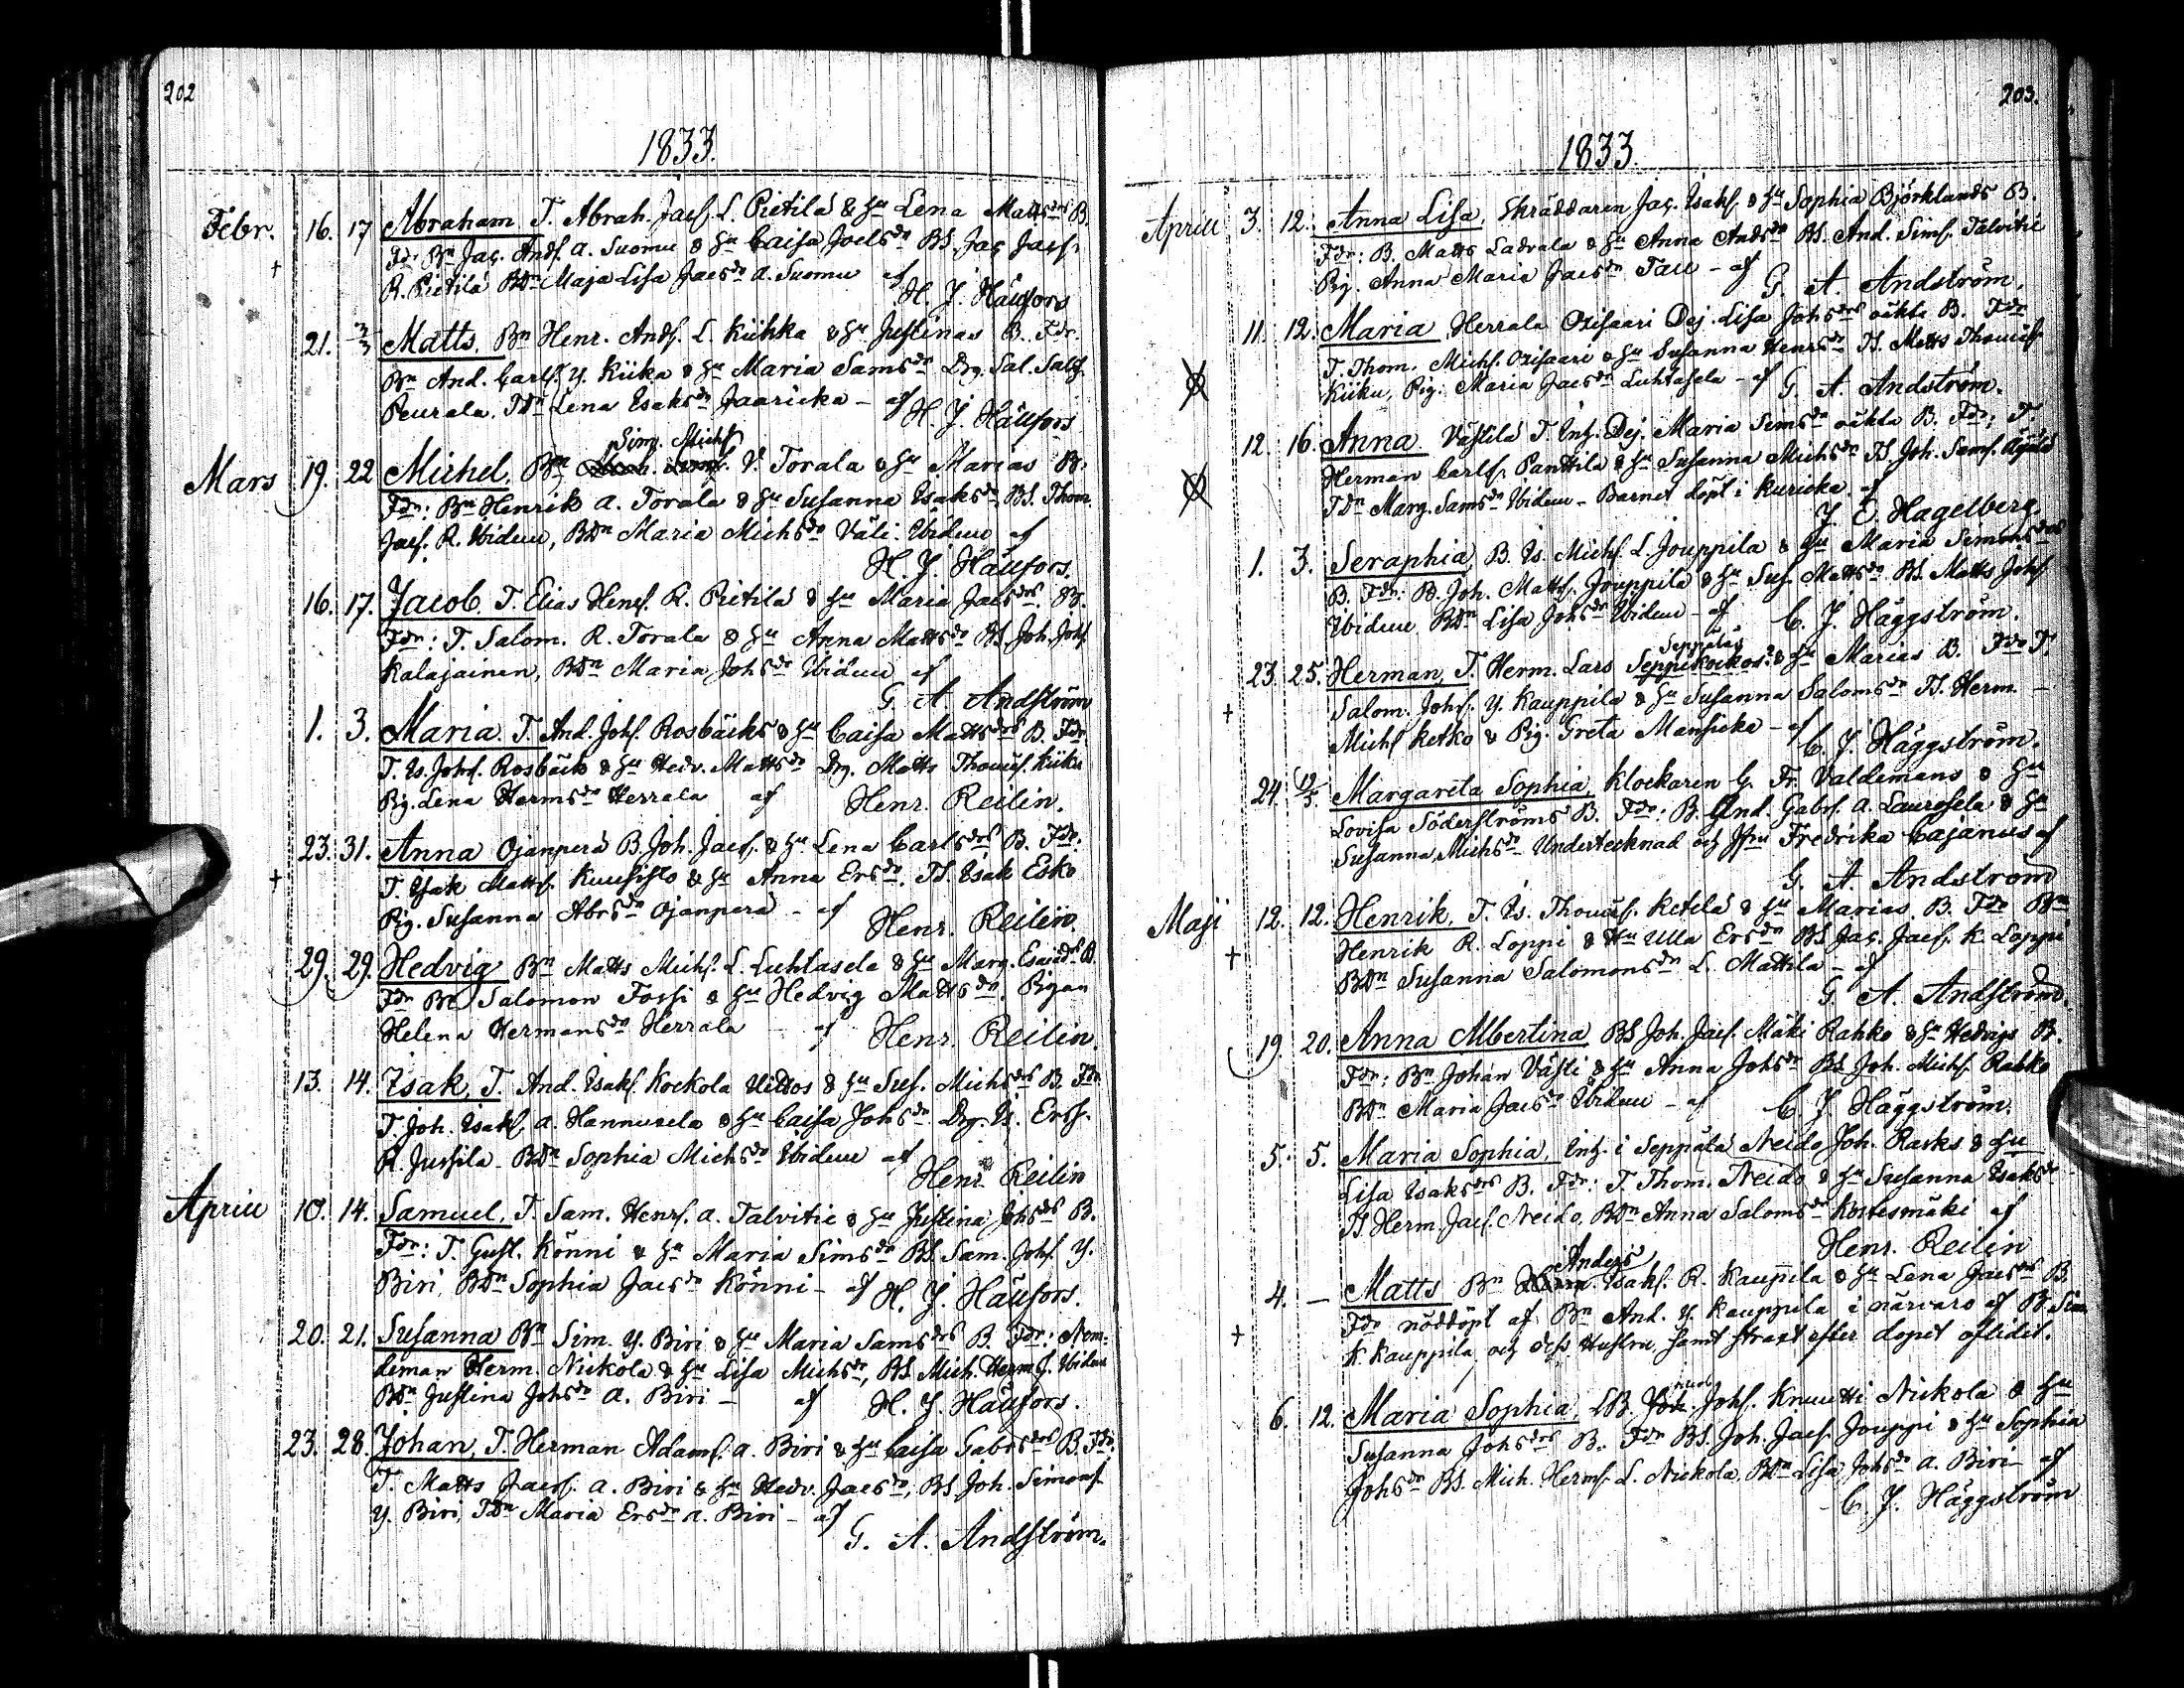 202
1833.
Febr. 16. 17 Abraham T. Abrah. Jacs. L. Pietilä & hu Lena Mattsdrs B.
Fdr Bn Jac. Ands. a. Suomu & hu Caisa Joelsdr BS. Jac Jacs.
R. Pietilä BDn Maja Lisa Jacsdr a. Suomu af
H. J. Häufors
21. 3/3 Matts. Bn Henr. Ands. L. Kiihka & hu Justinas B. Fdr.
Bn And. Carls. Y. Kiika & hu Maria Samsdr Drg. Sal. Sals.
Peurala. TDn Lena Esaksdr Jaaricka - af
H. J. Häufors
Sim. Michs
Mars 19. 22 Michel, Bn V. Torala & hu Marias B.
Fdr: Bn Henrik a. Torala & hu Susanna Isaksdr BS. Thom.
Jacs. R. Ibidem, BDn Maria Michsdr Väli. Ibidem af
H. J. Häufors.
16. 17. Jacob T. Elias Henrs. R. Pietilä & hu Maria Jacsdrs. B.
Fdr: T. Salom. R. Torala & hu Anna Mattsdr BS. Joh. Johs
Kalajainen, BDn Maria Johsdr Ibidem af
G. A. Andström
1. 3. Maria. T. And. Johs. Rosbäcks & hu Caisa Mattsdrs B. Fdr
T. Is. Johs. Rosbäck & hu Hedv. Mattsdr Drg. Matts Thomas. Kiiku
Pig. Lena Hermsdr Herrala af Henr. Reilin.
23. 31. Anna Ojanperä B. Joh. Jacs. & hu Lena Carlsdrs B. Fdr.
T. Isak Matts. Kuusisto & hu Anna Ersdr. TS. Isak Esko
Pig. Susanna Abrsdr Ojanperä - af Henr. Reilin.
29. 29. Hedvig Bn Matts Michs. L. Luhtasela & hu Marg. Esaiædrs B.
Fdr Bn Salomon Fossi & hu Hedvig Mattsdr, Pigan
Helena Hermansdr Herrala - af Henr. Reilin.
13. 14. Isak, T. And. Isaks. Kockola Uittos & hu Sus. Michsdrs B. Fdr
T. Joh. Isaks. a. Hannuxela & hu Caisa Johsdr Drg. Is. Erss.
R. Jussila. BDn Sophia Michsdr Ibidem af
Henr. Reilin
Aprill 10. 14. Samuel, T. Sam. Henrs. a. Talvitie & hu Justina Johsdrs B.
Fdr: T. Gust. Könni & hu Maria Simsdr BS. Sam. Johs. Y.
Biri, BDn Sophia Jacsdr Könni - af H. J. Häufors.
20. 21. Susanna Bn Sim. Y. Biri & hu Maria Samsdrs B. Fdr: Nem-
deman Herm. Nickola & hu Lisa Michsdr, BS. Mich. Herms. Ibidem
BDn Justina Johsdr a. Biri - af H. J. Häufors.
23. 28. Johan, T. Herman Adams. a. Biri & hu Caisa Gabrsdrs B. Fdr
T. Matts Jacs. a. Biri & hu Hedv. Jacsdr, BS. Joh. Simons
Y. Biri, TDn Maria Ersdr a. Biri - af
G. A. Andström.
203.
1833
Aprill 3. 12. Anna Lisa, Skräddaren Jac. Isaks. & hu Sophia Björklunds B.
Fdr: B. Matts Ladvala & hu Anna Andsdr BS. And. Sims. Talvitie
Pig. Anna Maria Jacsdr - af
G. A. Andström.
11. 12. Maria, Herrala Orisaari Dej. Lisa Johsdrs oäkta B. Fdr
T. Thom. Michs. Orisaari & hu Susanna Henrsdr TS. Matts Thomas
Kiiku, Pig: Maria Jacsdr Luhtasela - af G. A. Andström.
12. 16. Anna Västilä T. Inh. Dej. Maria Simsdr oäkta B. Fdr: T.
Herman Carls. Panttila & hu Susanna Michsdr TS. Joh. Sams.
TDn Marg. Samsdr Ibidem - Barnet döpt i Kuricka. af
J. E. Hagelberg.
1. 3. Seraphia, B. Is. Michs. L. Jouppila & hu Maria Simonsdrs
B. Fdr: B. Joh. Matts. Jouppila & hu Sus. Mattsdr BS. Matts Johs
Ibidem. BDn Lisa Johsdr Ibidem - af C. J. Häggström.
Seppälas
23. 25. Herman, T. Herm. Lars Seppikockos? & hu Marias B. Fdr T.
Salom. Johs. Y. Kauppila & hu Susanna Salomsdr TS. Herm. -
Michs Ketko & Pig. Greta Mansicka - af
C. J. Häggström.
24. 12/5. Margareta Sophia, Klockaren G. Fr. Valdemans & hu
Lovisa Söderströms B. Fdr: B. And. Gabrs. a. Laurosela & hu
Susanna Michsdr Undertecknad och Jfru Fredrika Cajanus af
G. A. Andström
Maji 12. 12. Henrik, T. Is. Thomas. Ketelä & hu Marias. B. Fdr Bn
Henrik R. Loppi & Hu Ulla Ersdr BS. Jac. Jacs. K. Loppi
BDn Susanna Salomonsdr L. Mattila - af
G. A. Andström.
19. 20. Anna Albertina, BS Joh. Jacs. Mäki Rahko & hu Hedvigs B.
Fdr: Bn Johan Västi & hu Anna Johsdr BS. Joh. Michs. Rahko
BDn Maria Jacsdr Ibidem - af C. J. Häggström.
5. 5. Maria Sophia, Inh. i Seppälä Neido Joh. Rasks & hu
Lisa Isaksdrs B. Fdr: T. Thom. Neido & hu Susanna Isaksdr
TS. Herm. Jacs. Neido, BDn Anna Salomsdr Kortesmäki af
Henr. Reilin
Anders
4. - Matts Bn Isaks. R. Kauppila & hu Lena Jacsdrs B.
Fdr nöddöpt af Bn And. Y. Kauppila i närvaro af B. Sim
K. Kauppila, och dess Hustru, samt straxt efter dopet aflidit.
6. 12. Maria Sophia, LB. Johs. Knuutti Nickola & hu
Susanna Johsdrs B. Fdr BS. Joh. Jacs. Jouppi & hu Sophia
Johsdr BS. Mich. Herms. L. Nickola, BDn Lisa Johsdr a. Biri - af
C. J. Häggström